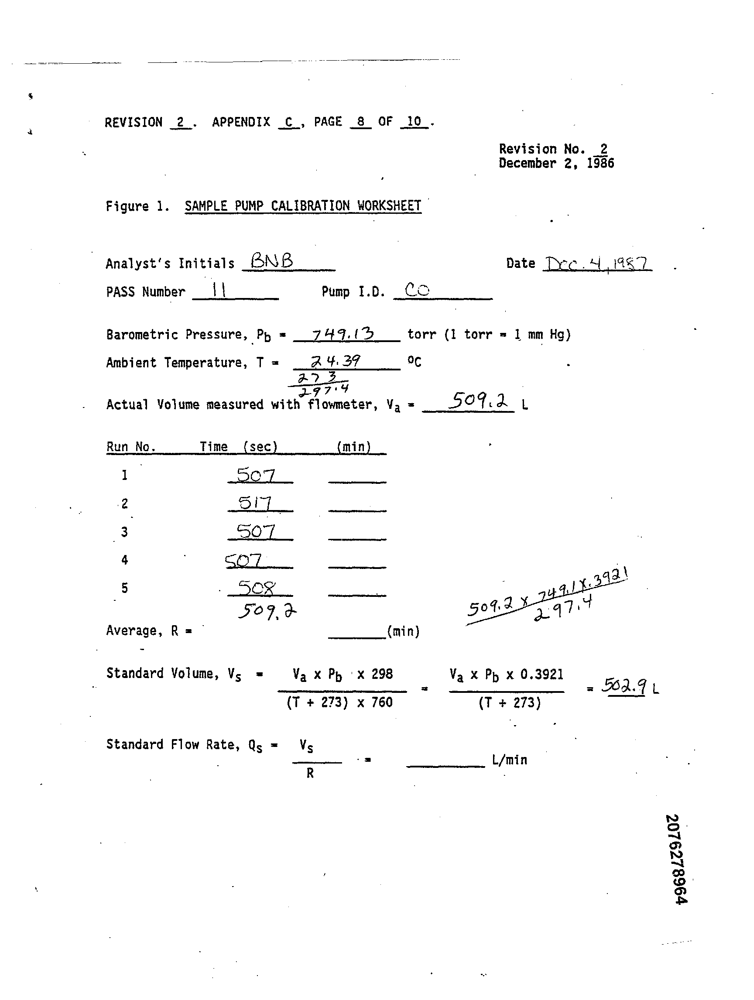 REVISION 2 . APPENDIX C , PAGE 8 OF 10 .
Revision No. 2
December 2, 1986
Figure 1. SAMPLE PUMP CALIBRATION WORKSHEET
Analyst's Initials BNB Date Dec. 4, 1987
PASS Number 11 Pump I.D. CO
Barometric Pressure, Pb = 749.13 torr (1 torr = 1 mm Hg)
Ambient Temperature, T = 24.39 ºC
273
297.4
Actual Volume measured with flowmeter, Va = 509.2 L
Run No. Time (sec) (min)
1 507
2 517
3 507
4 507
5 508
509.2
509.2 x 749.1 x .3921
297.4
Average, R = (min)
Standard Volume, Vs = Va x Pb x 298 = Va x Pb x 0.3921 = 502.9 L
(T + 273) x 760 (T + 273)
Standard Flow Rate, Qs = Vs = L/min
R
2076278964